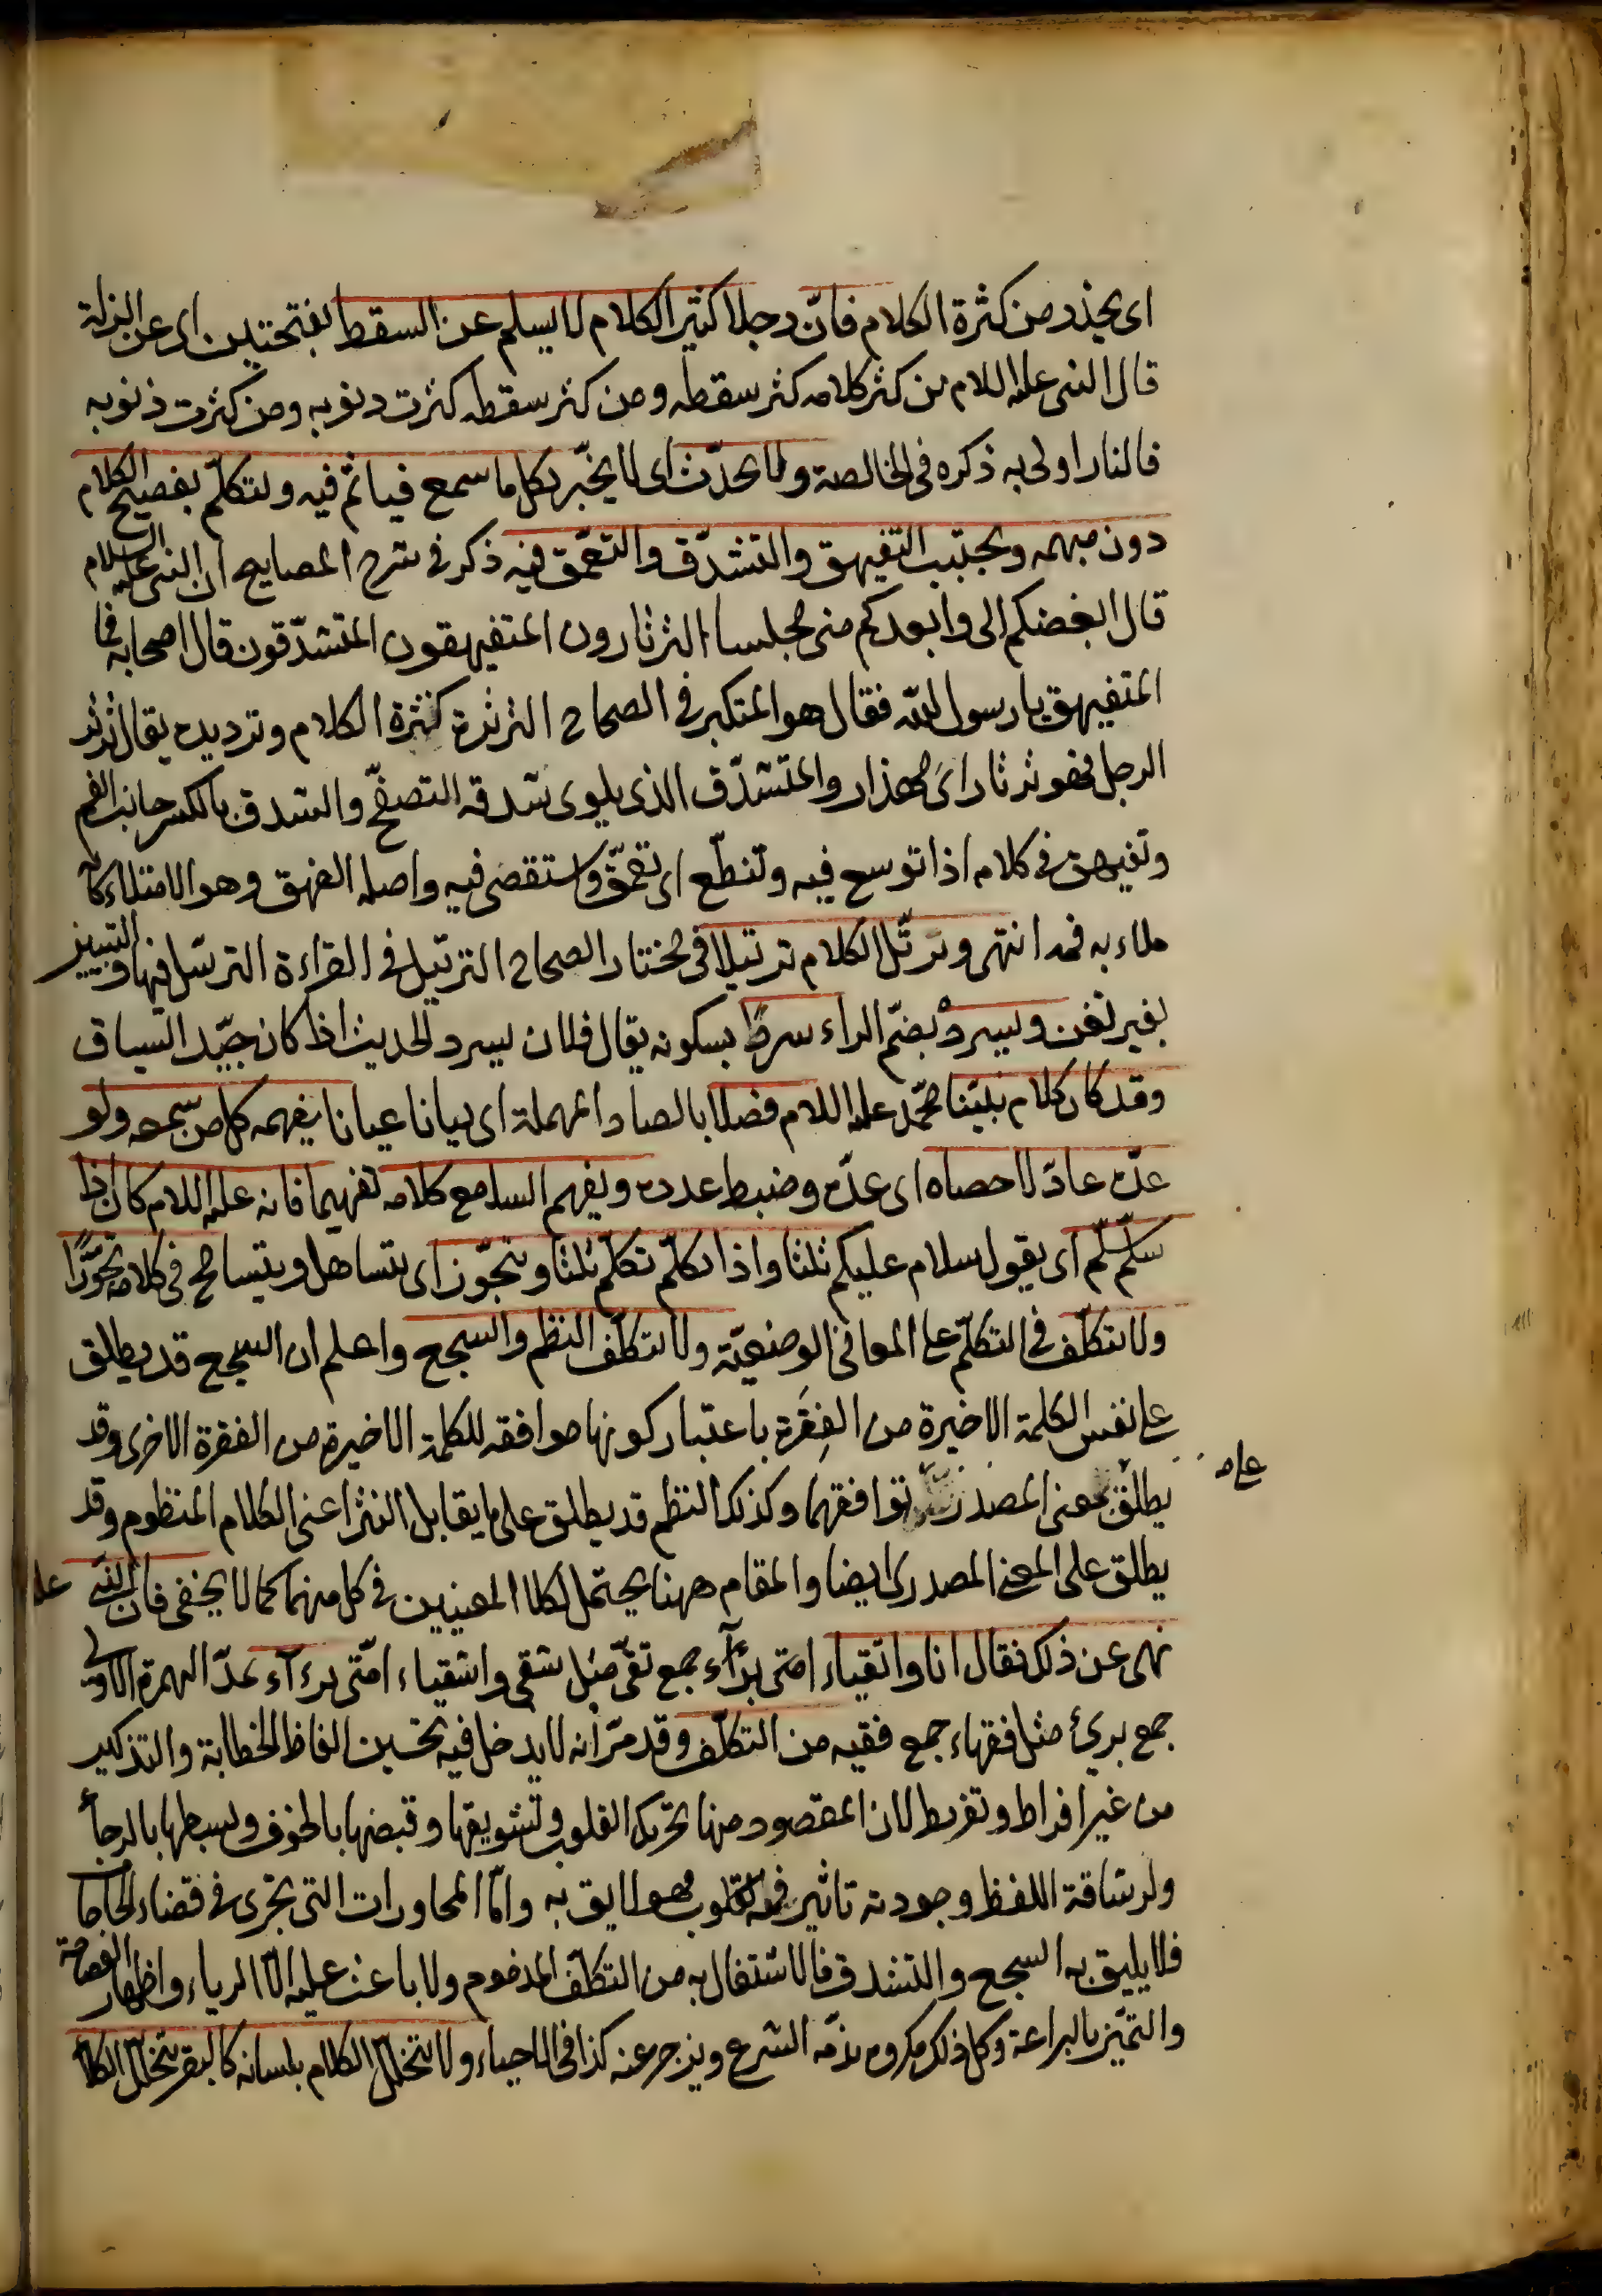 اى يحذر من كثرة الكلام فانّ رجلا كثير الكلام لا يسلم عن السقط بفتحتين اى عن الزلة
قال النبى عليه السلام من كثر كلامه كثر سقطه ومن كثر سقطه كثرت ذنوبه ومن كثرت ذنوبه
فالنار اولى به ذكره فى الخالصة ولا يحدّث اى لا يخبّر بكل ما سمع فيأثم فيه ويتكلّم بفصيح الكلام
دون مبهمه ويجتنب التفيهق والتشدّق والتعمّق فيه ذكر فى شرح المصابيح ان النبى عليه السلام
قال ابغضكم الى وابعدكم منى مجلسا الثرثارون المتفيهقون المتشدّقون قال اصحابه فما
المتفيهق يا رسول الله فقال هو المتكبر فى الصحاح الثرثرة كثرة الكلام وترديده يقال ثرثر
الرجل فهو ثرثار اى مهذار والمتشدّق الذى يلوى شدقه التصفّح والشدق بالكسر جانب الفم
وتفيهق فى كلامه اذا توسع فيه وتنطّع اى تعمّق واستقصى فيه واصله الفهق وهو الامتلاء كأنه
ملاء به فمه انتهى ويرتّل الكلام ترتيلا فى مختار الصحاح الترتيل فى القراءة الترسّل فيها والتبيين
بغير تغن ويسرد بضمّ الراء سردا بسكونه يقال فلان يسرد الحديث اذا كان جيّد السياق
وقد كان كلام نبيّنا محمّد عليه السلام فصلا بالصاد المهملة اى بيانا عيانا يفهمه كل من سمعه ولو
عدّه عادّ لاحصاه اى عدّه وضبط عدده ويفهم السامع كلامه تفهيما فانه عليه السلام كان اذا
سلّم سلّم اى يقول سلام عليكم ثلثا واذا تكلّم تكلّم ثلثا ويتجوّز اى يتساهل ويتسامح فى كلامه تجوّزا
ولا يتكلّف فى التكلّم على المعانى الوضعيّة ولا يتكلّف النظم والسجع واعلم ان السجع قد يطلق
على نفس الكلمة الاخيرة من الفقرة باعتبار كونها موافقة للكلمة الاخيرة من الفقرة الاخرى وقد
يطلق بمعنى المصدر توافقهما وكذلك النظم قد يطلق على ما يقابل النثر اعنى الكلام المنظوم وقد
يطلق على المعنى المصدرى ايضا والمقام ههنا يحتمل لكلا المعنيين فى كل منهما كما لا يخفى فان النبى عليه
نهى عن ذلك فقال انا واتقياء امتى برآء جمع تقىّ مثل شقى واشقياء امّتى برءآء بمدّ الهمزة الاولى
جمع برئ مثل فقهاء جمع فقيه من التكلّف وقد مرّ انه لا يدخل فيه تحسين الفاظ الخطابة والتذكير
من غير افراط وتفريط لان المقصود منها تحريك القلوب وتشويقها وقبضها بالخوف وبسطها بالرجأ
ولرشاقة اللفظ وجودته تاثير فى القلوب فهو لايق به وامّا المحاورات التى تجرى فى قضاء الحاجا
فلا يليق به السجع والتشدق فالاشتغال به من التكلّف المذموم ولا باعث عليه الّا الرياء واظهار الفصاحة
والتميّز بالبراعة وكل ذلك مكروه يذمّه الشرع ويزجر عنه كذا فى الاحياء ولا يتخلّل الكلام بلسانه كالبقر يتخلّل الكلأ